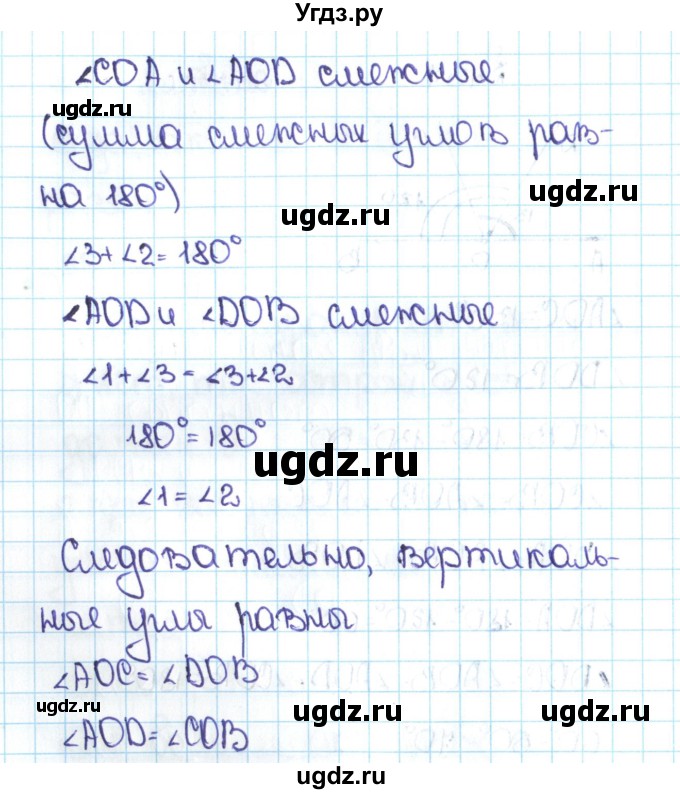 Угдз.ру
∠COA и ∠AOD смежные.
ugdz.ru
(сумма смежных углов рав-
на 180°)
ugdz.ru
ugdz.ru
∠3+∠2=180°
ugdz.ru
∠AOD и ∠DOB смежные
∠1+∠3=∠3+∠2
180°=180°
ugdz.ru
∠1=∠2
Следовательно, вертикаль-
ные углы равны
∠AOC=∠DOB
ugdz.ru
ugdz.ru
ugdz.ru
∠AOD=∠COB
ugdz.ru